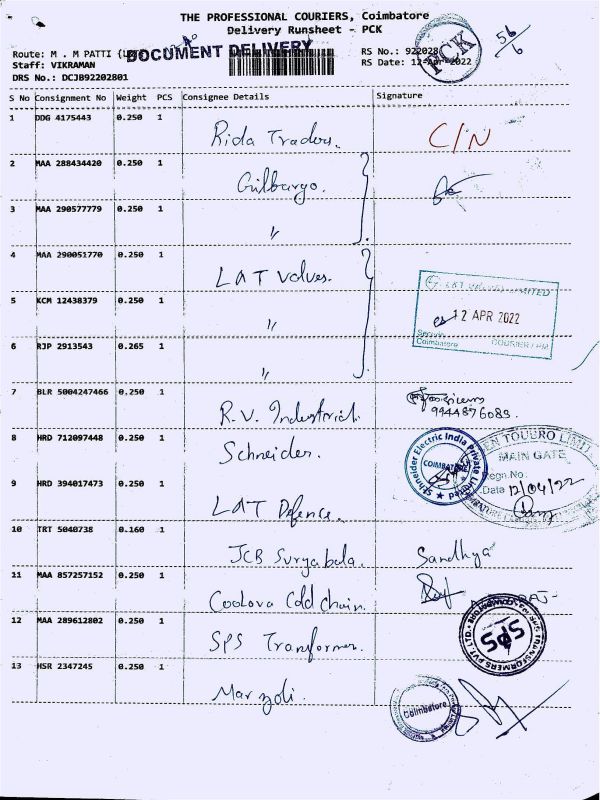 THE PROFESSIONAL COURIERS, Coimbatore
Delivery Runsheet - PCK
56/6
PCK
Route: M . M PATTI
DOCUMENT DELIVERY
RS No.: 922028
Staff: VIKRAMAN
RS Date: 12-Apr-2022
DRS No.: DCJB92202801
S No Consignment No Weight PCS Consignee Details Signature
1 DDG 4175443 0.250 1
Rida Traders. C/N
2 MAA 288434420 0.250 1
Gilbargo.
3 MAA 290577779 0.250 1
"
4 MAA 290051770 0.250 1
L&T Valves.
L&T VALVES LIMITED
5 KCM 12438379 0.250 1
"
12 APR 2022
Coimbatore COURIER / HM
6 RJP 2913543 0.265 1
"
7 BLR 5004247466 0.250 1
R.V. Industrial.
9944876083.
8 HRD 712097448 0.250 1
Schneider.
Schneider Electric India Private Limited
COIMBATORE
TOUBRO LIMIT
MAIN GATE
Regn.No.
Date 12/04/22
9 HRD 394017473 0.250 1
L&T Defence.
10 TRT 5040738 0.160 1
JCB Suryabala. Sandhya
11 MAA 857257152 0.250 1
Coolova Cold chain.
12 MAA 289612802 0.250 1
SPS Transformer.
SPS
TRANSFORMERS PVT. LTD.
13 HSR 2347245 0.250 1
Marzoli.
Coimbatore